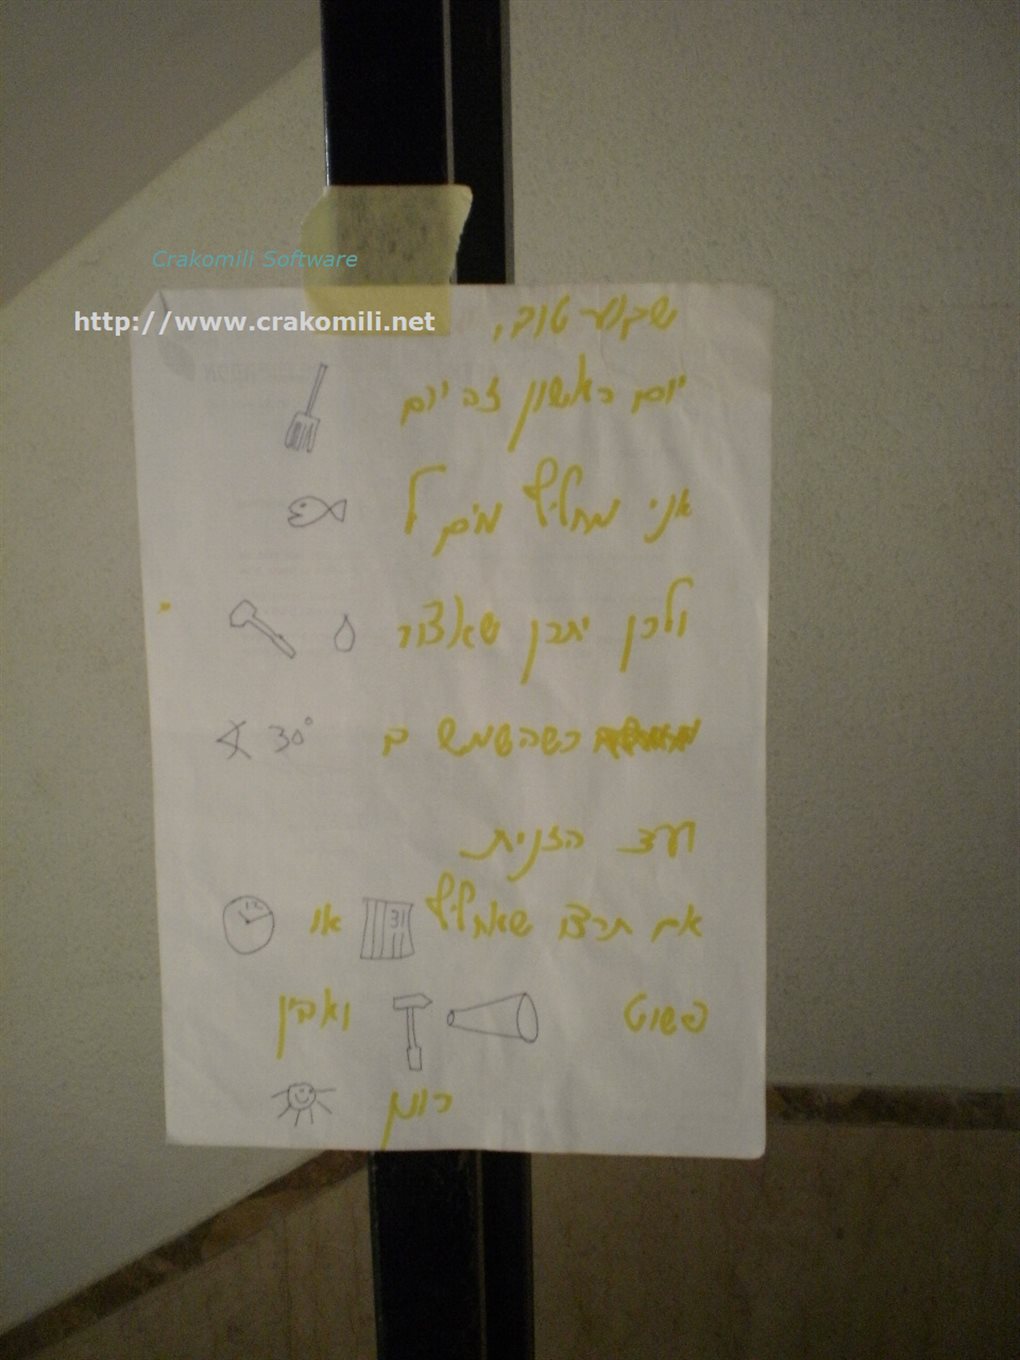 Crakomili Software
http://www.crakomili.net
שבוע טוב,
יום ראשון זה יום
אני מחליף מים ל
ולכן יתכן שאצור
כשהשמש ב 30°
ועד הזנית.
אם תרצו שאחליף 31 או 12
פשוט ואבין
רותן